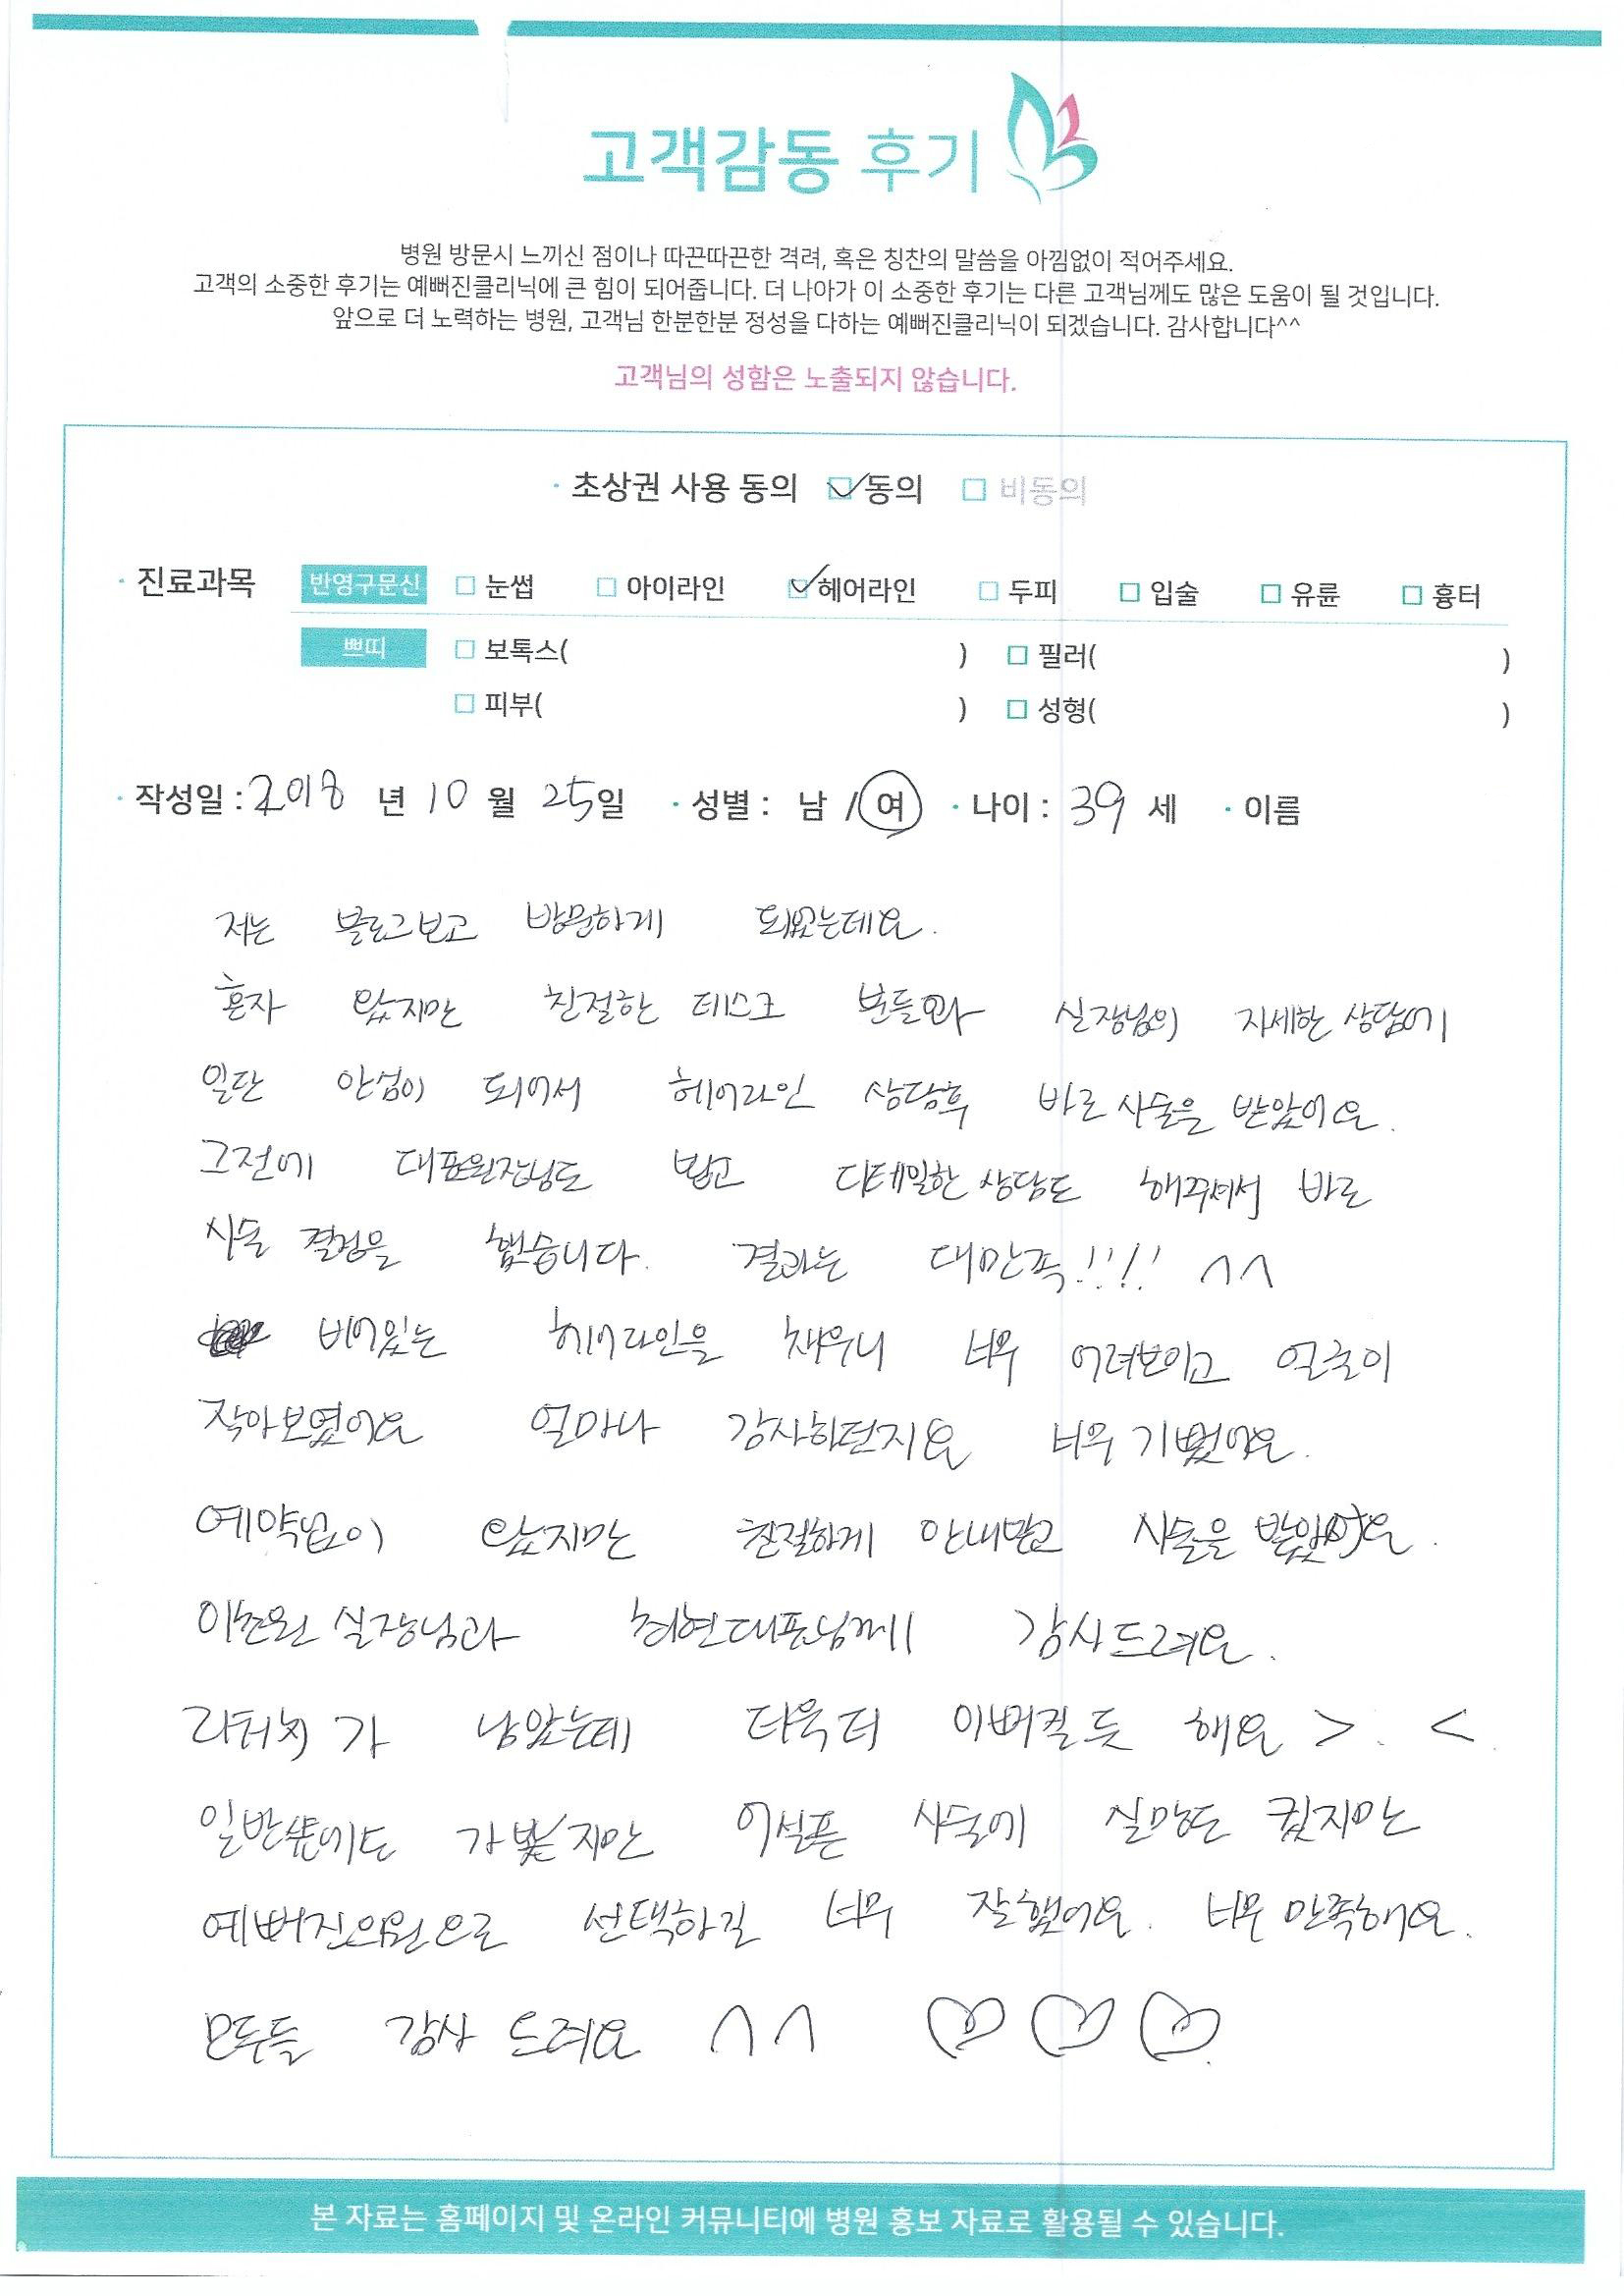 고객감동 후기
병원 방문시 느끼신 점이나 따끈따끈한 격려, 혹은 칭찬의 말씀을 아낌없이 적어주세요.
고객의 소중한 후기는 예뻐진클리닉에 큰 힘이 되어줍니다. 더 나아가 이 소중한 후기는 다른 고객님께도 많은 도움이 될 것입니다.
앞으로 더 노력하는 병원, 고객님 한분한분 정성을 다하는 예뻐진클리닉이 되겠습니다. 감사합니다^^
고객님의 성함은 노출되지 않습니다.
· 초상권 사용 동의 ☑ 동의 □ 비동의
· 진료과목 반영구문신 □ 눈썹 □ 아이라인 ☑ 헤어라인 □ 두피 □ 입술 □ 유륜 □ 흉터
쁘띠 □ 보톡스( ) □ 필러( )
□ 피부( ) □ 성형( )
· 작성일 : 2018 년 10 월 25일 · 성별 : 남 / 여 · 나이 : 39 세 · 이름
저는 블로그보고 방문하게 되었는데요.
혼자 왔지만 친절한 데스크 분들과 실장님의 자세한 상담에
일단 안심이 되어서 헤어라인 상담후 바로 시술을 받았어요.
그전에 대표원장님도 뵙고 디테일한 상담도 해주셔서 바로
시술 결정을 했습니다. 결과는 대만족!!!! ^^
비어있는 헤어라인을 채우니 너무 어려보이고 얼굴이
작아보였어요 얼마나 감사하던지요 너무 기뻤어요.
예약없이 왔지만 친절하게 안내받고 시술을 받았어요.
실장님과 대표님께 감사드려요.
리터치가 남았는데 더욱더 이뻐질듯 해요 > . <.
어설픈 시술에 실망도 컸지만
예뻐진의원으로 선택하길 너무 잘했어요. 너무 만족해요.
모두들 감사 드려요 ^^ ♡♡♡
본 자료는 홈페이지 및 온라인 커뮤니티에 병원 홍보 자료로 활용될 수 있습니다.